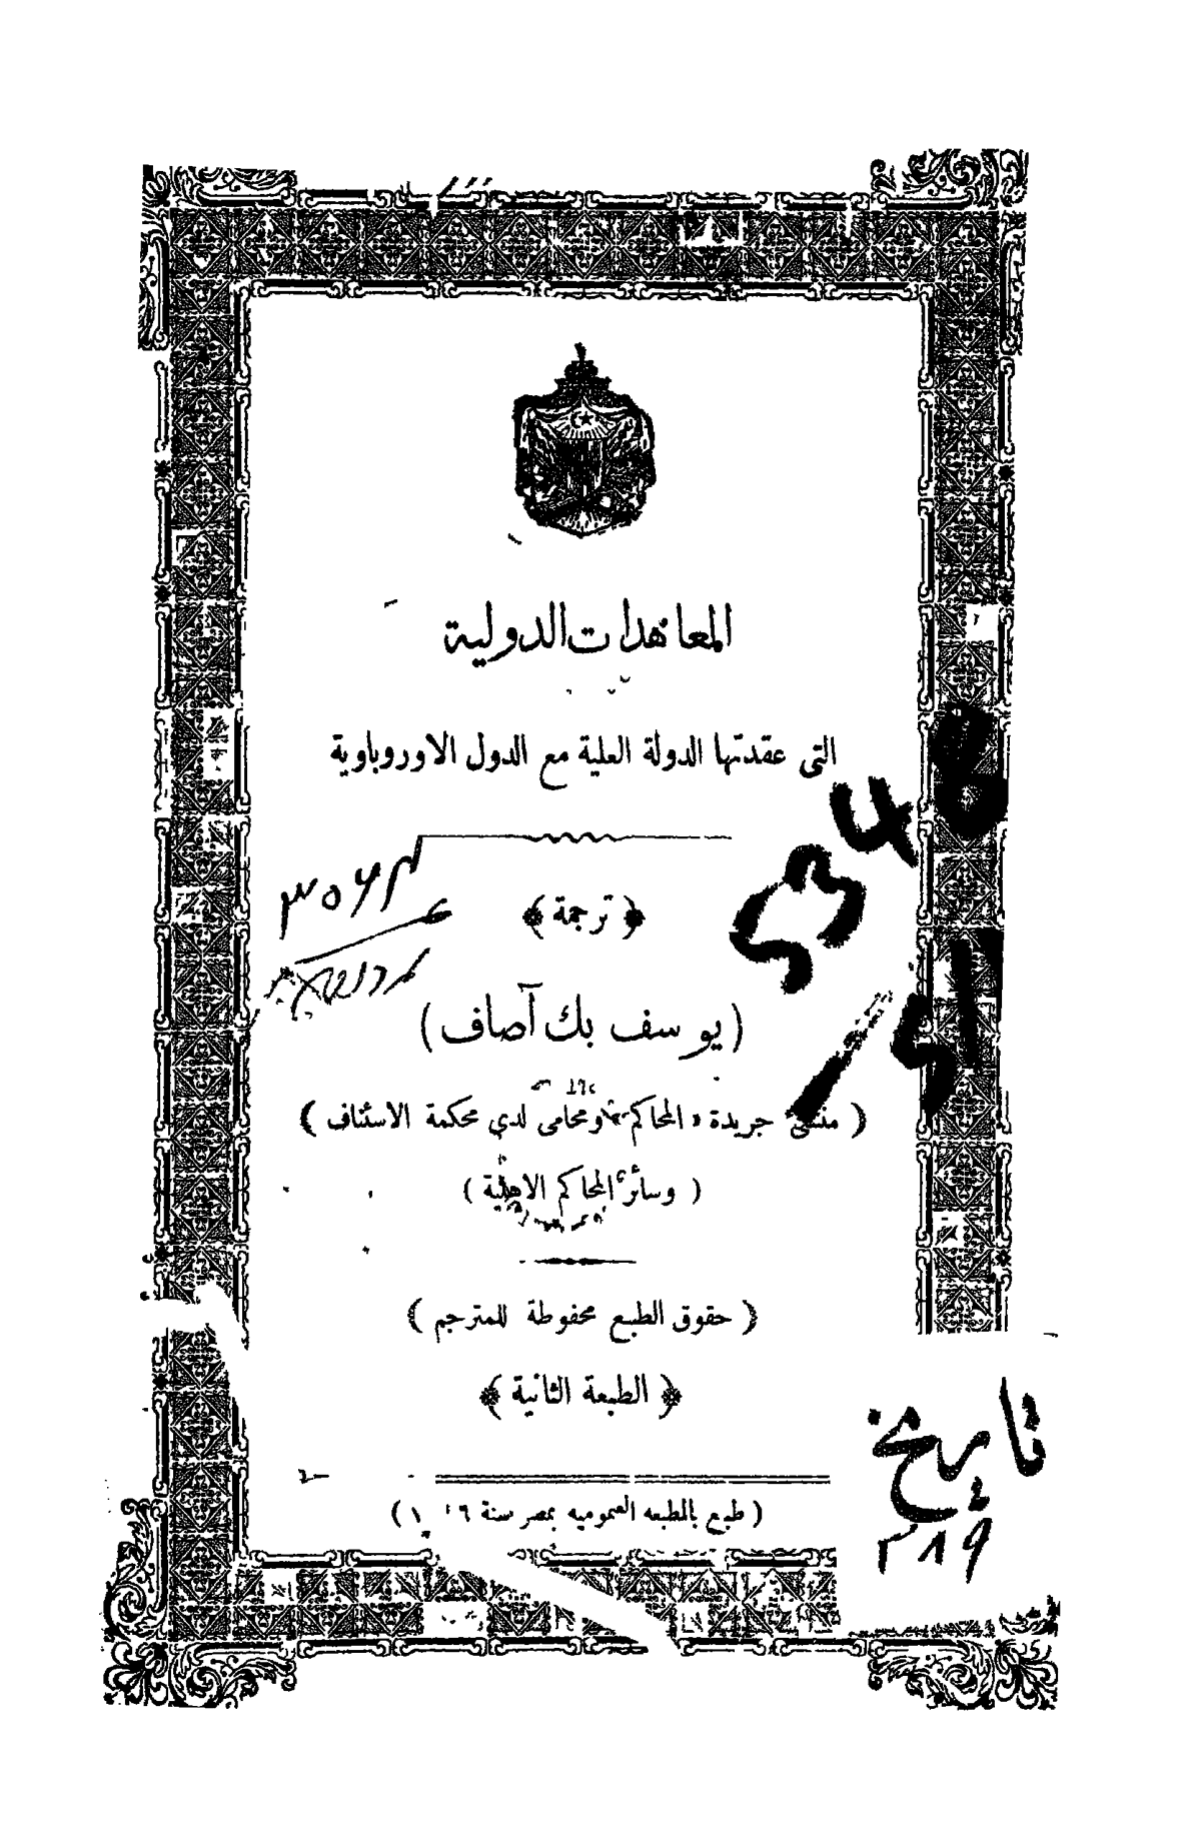 المعاهدات الدولية
التى عقدتها الدولة العلية مع الدول الاوروباوية
﴿ ترجمة ﴾
(يوسف بك آصاف)
( منشئ جريدة « المحاكم » ومحامى لدي محكمة الاستئناف )
( وسائر المحاكم الاهلية )
( حقوق الطبع محفوظة للمترجم )
﴿ الطبعة الثانية ﴾
( طبع بالمطبعه العموميه بمصر سنة
5348
/51
تاريخ
٣٨٩